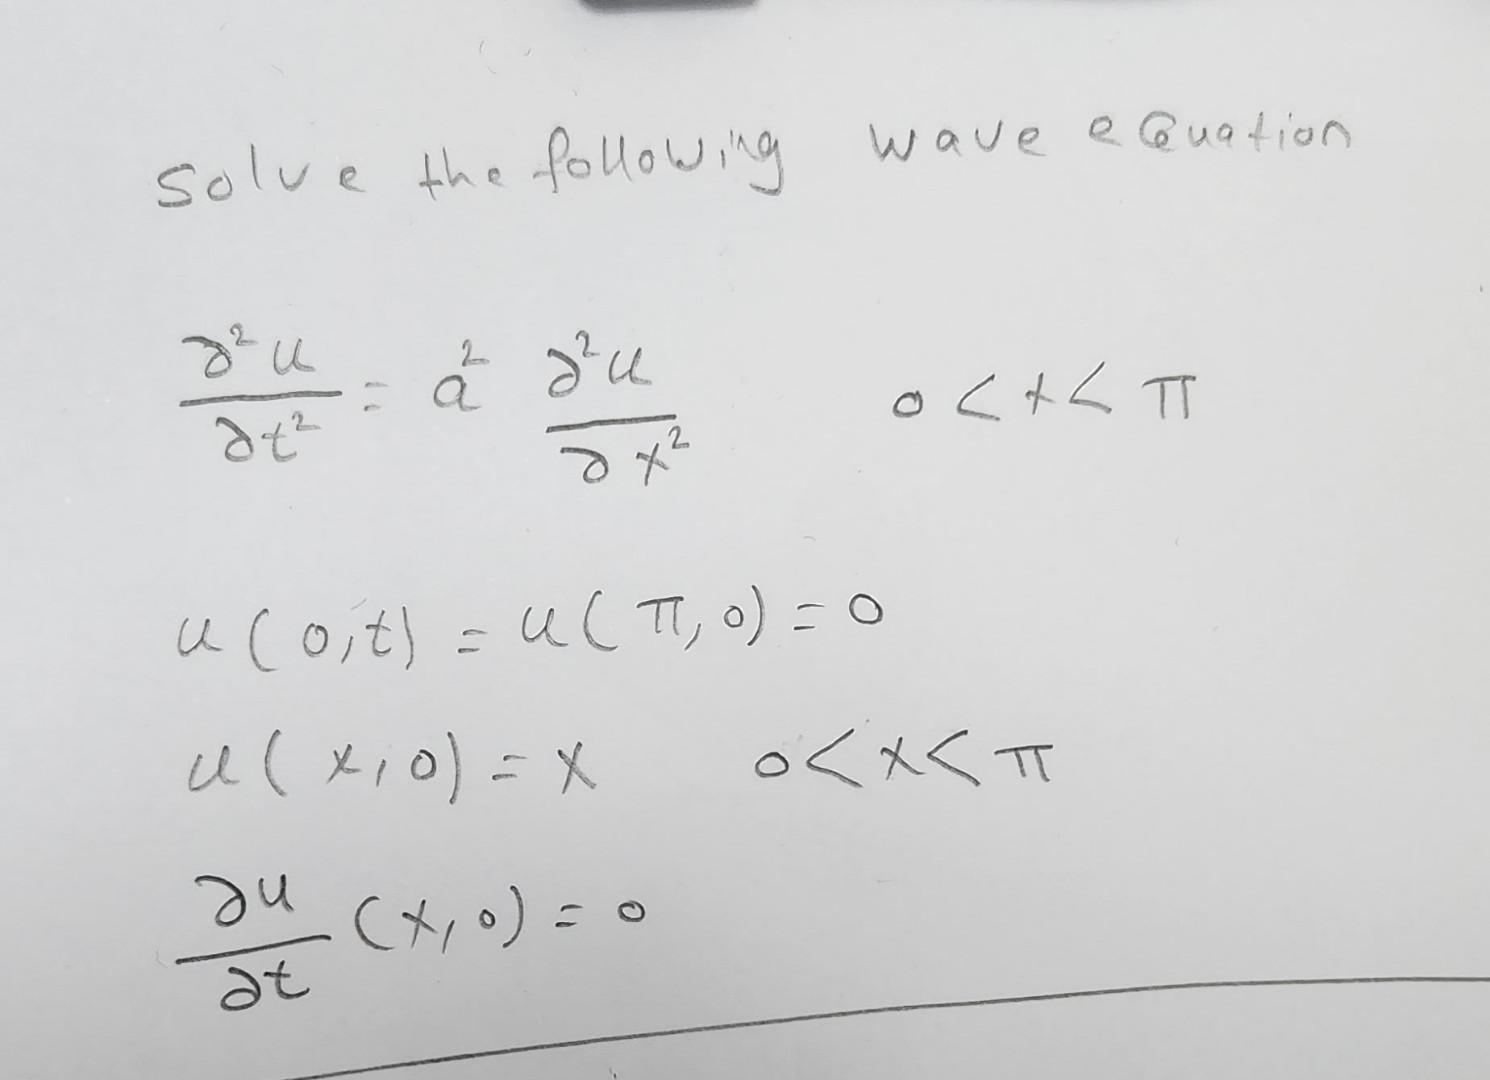 Solve the following wave equation
∂²u/∂t² = a² ∂²u/∂x² 0 < x < π
u(0,t) = u(π,0) = 0
u(x,0) = x 0 < x < π
∂u/∂t (x,0) = 0